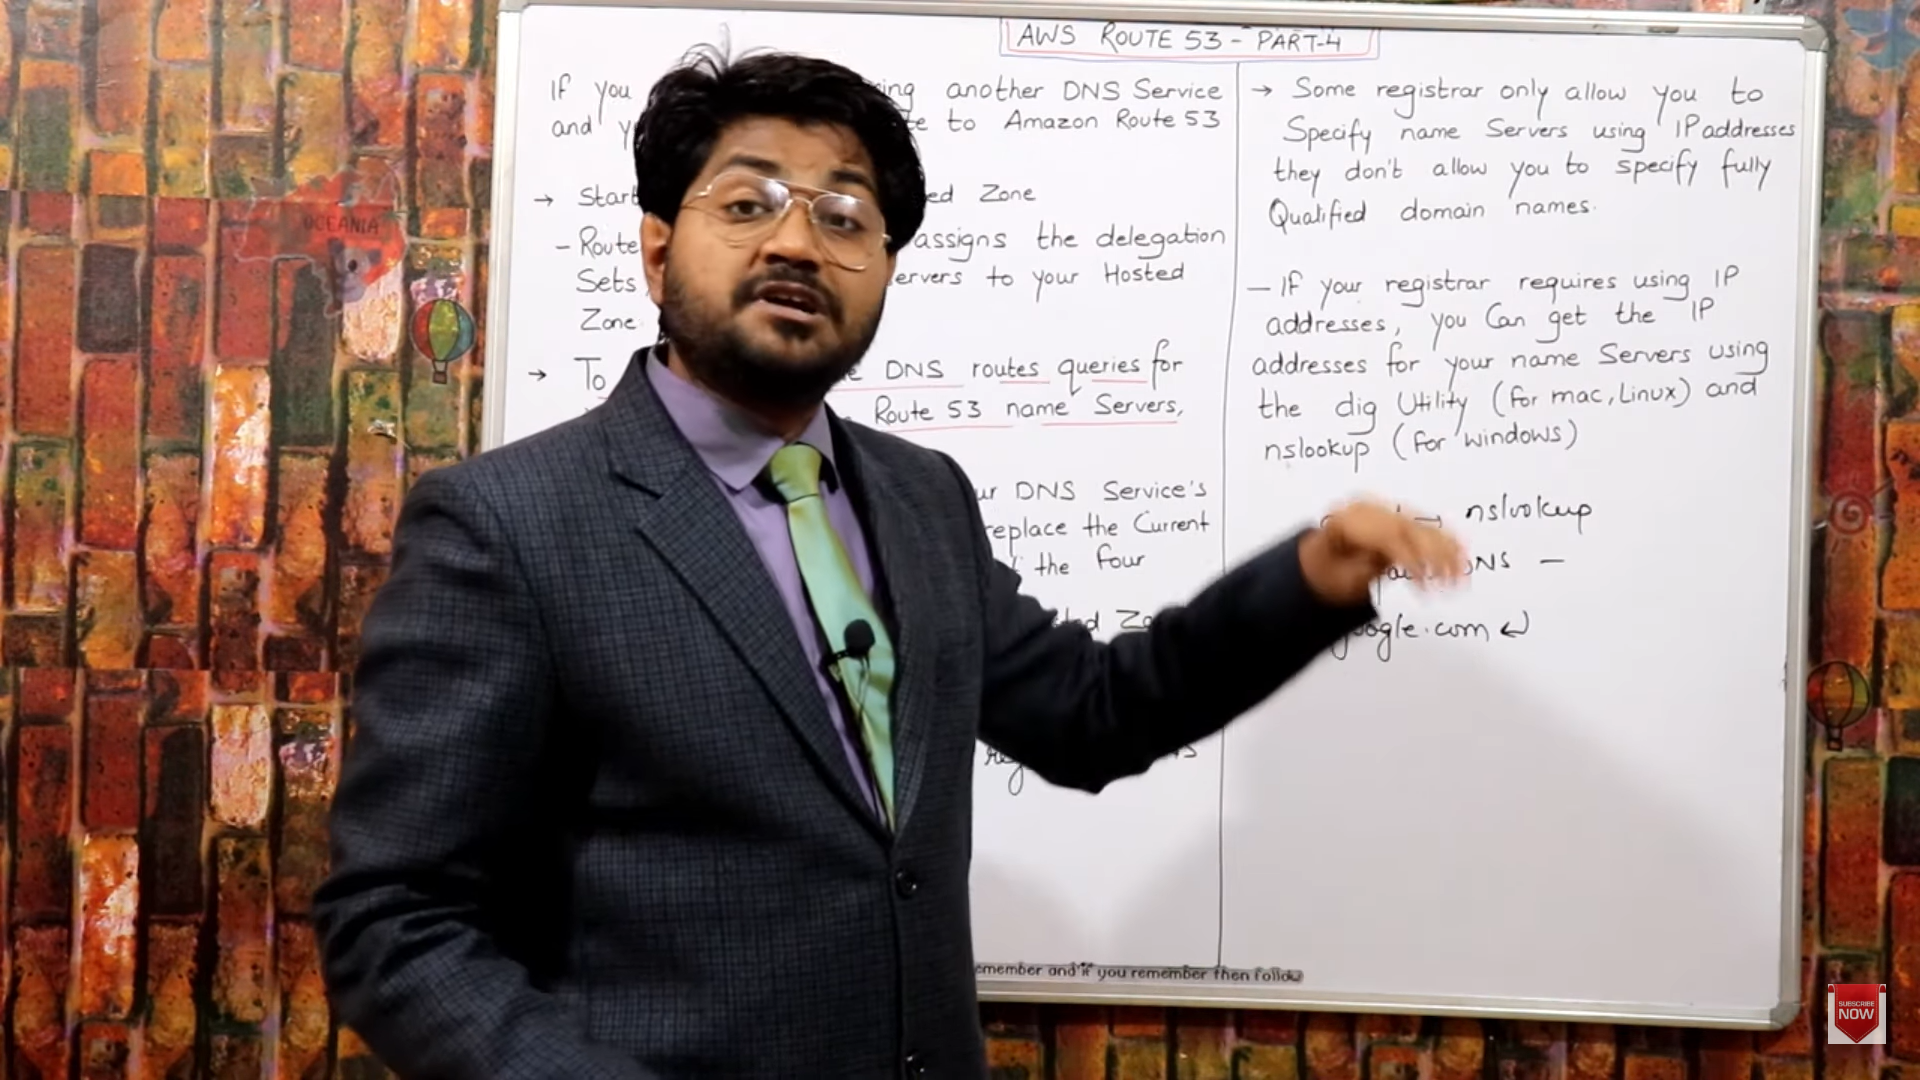 AWS ROUTE 53 - PART-4
If you ing another DNS Service
and te to Amazon Route 53
→ Start ed Zone
- Route assigns the delegation
Sets ervers to your Hosted
Zone.
→ To DNS routes queries for
Route 53 name Servers,
ur DNS Service's
replace the Current
the four
ted Zo
→ Some registrar only allow you to
Specify name Servers using IP addresses
they don't allow you to specify fully
Qualified domain names.
- If your registrar requires using IP
addresses, you Can get the IP
addresses for your name Servers using
the dig Utility (for mac, Linux) and
nslookup (for windows)
→ nslookup
DNS -
google.com ↵
emember and if you remember then follow
OCEANIA
SUBSCRIBE
NOW